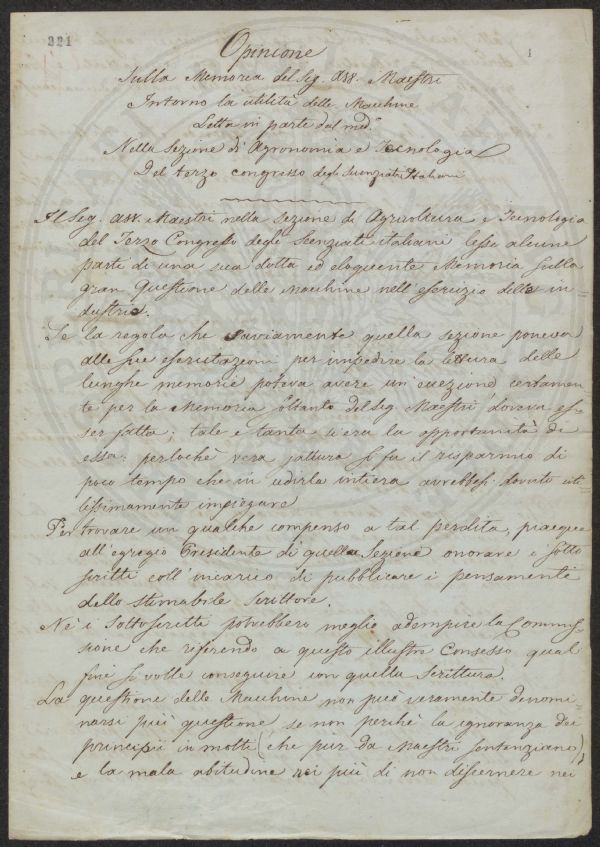 221
1
Opinione
Sulla Memoria del Sig. ass. Maestri
Intorno la utilità delle Macchine
Letta in parte dal med.º
Nella Sezione di Agronomia e Tecnologia
Del terzo congresso degli Scienziati Italiani
Il Sig. ass. Maestri nella sezione di Agricoltura e Tecnologia
del Terzo Congresso degli Scenziati italiani lesse alcune
parti di una sua dotta ed eloquente Memoria sulla
gran Questione delle Macchine nell'esercizio delle in
dustrie.
Se la regola che saviamente quella sezione poneva
alle sue per impedire la lettura delle
lunghe memorie poteva avere un'eccezione, certamen
te per la Memoria soltanto del Sig. Maestri doveva es-
ser fatta; tale e tanta si era la opportunità di
essa: perlochè vera jattura si fu il risparmio di
poco tempo che in udirla intiera avrebbesi dovuto uti
lissimamente impiegare
Per trovare un qualche compenso a tal perdita, piacque
all'egregio Presidente di quella Sezione onorare i sotto
scritti coll'incarico di pubblicare i pensamenti
dello stimabile scrittore.
Nè i Sottoscritti potrebbero meglio adempire la Commis-
sione che riferendo a questo illustre Consesso qual
fine si volle conseguire con quella scrittura.
La questione delle Macchine non può veramente denomi-
narsi più questione se non perchè la ignoranza dei
principii in molti (che pur da Maestri sentenziano)
e la mala abitudine nei più di non discernere nei